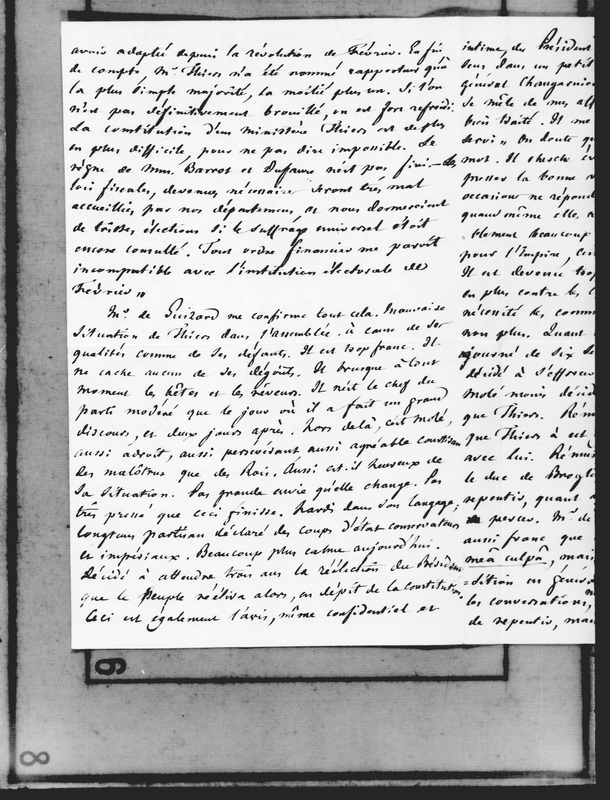 avoir adopté depuis la révolution de Février. En fin
de compte, Mr. Thiers n'a été nommé rapporteur qu'à
la plus simple majorité, la moitié plus un. Si l'on
n'est pas définitivement brouillé, on est fort refroidi.
La constitution d'un ministère Thiers est de plus
en plus difficile, pour ne pas dire impossible. Le
règne de Mrs. Barrot et Dufaure n'est pas fini. Les
lois fiscales, devenues nécessaires seront très mal
accueillies par nos départemens, et nous donneraient
de tristes élections si le suffrage universel était
encore consulté. Tout ordre financier me paroît
incompatible avec l'institution électorale de
Février "
Mr. de Guizard me confirme tout cela. Mauvaise
situation de Thiers dans l'assemblée, à cause de ses
qualités comme de ses défauts. Il est trop franc. Il
ne cache aucun de ses dégoûts. Il brusque à tout
moment les bêtes et les rêveurs. Il n'est le chef du
parti modéré que le jour où il a fait un grand
discours, et deux jours après. Hors de là, c'est Molé,
aussi adroit, aussi persévérant aussi agréable courtisan
des malôtrus que des Rois. Aussi est-il heureux de
sa situation. Pas grande envie qu'elle change. Pas
très pressé que ceci finisse. Hardi dans son langage;
longtems partisan déclaré des coups d'état conservateurs
et impériaux. Beaucoup plus calme aujourd'hui.
Décidé à attendre trois ans la réélection du Président
que le Peuple réélira alors, en dépit de la Constitution.
Ceci est également l'avis, même confidentiel et
intime, du Président
deux dans un petit
général Changarnier
se mêle de mes aff
bien traité. Il me
servi " On doute qu
mot. Il cherche
la bonne
occasion ne répond
quand même elle
blement beaucoup
pour l'Empire,
Il est devenu trop
en plus contre les
nécessité les comm
non plus. Quant
ajourné de six se
décidé à s'efforcer
Molé moins décid
que Thiers. Rému
que Thiers à est
avec lui. Rému
le duc de Broglie
repentis, quant
Mr. de
aussi franc que
meâ culpâ, mais
sition en généra
les conversations,
de repentis, mais
6
8